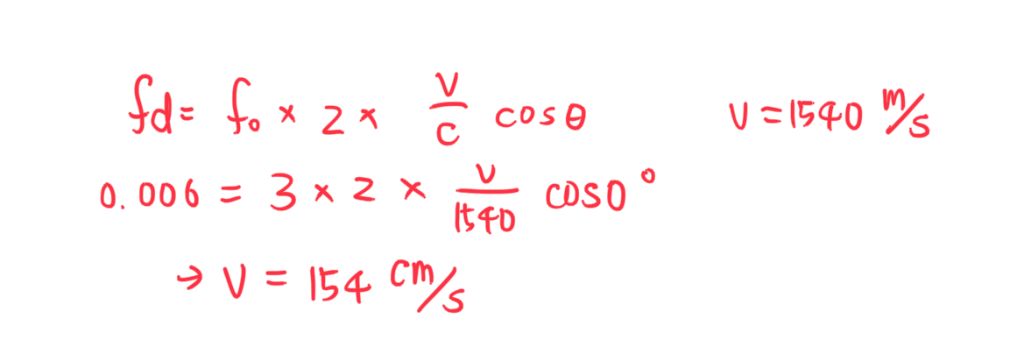 fd = f₀ × 2 × v/c cosθ    v = 1540 m/s
0.006 = 3 × 2 × v/1540 cos0°
→ v = 154 cm/s